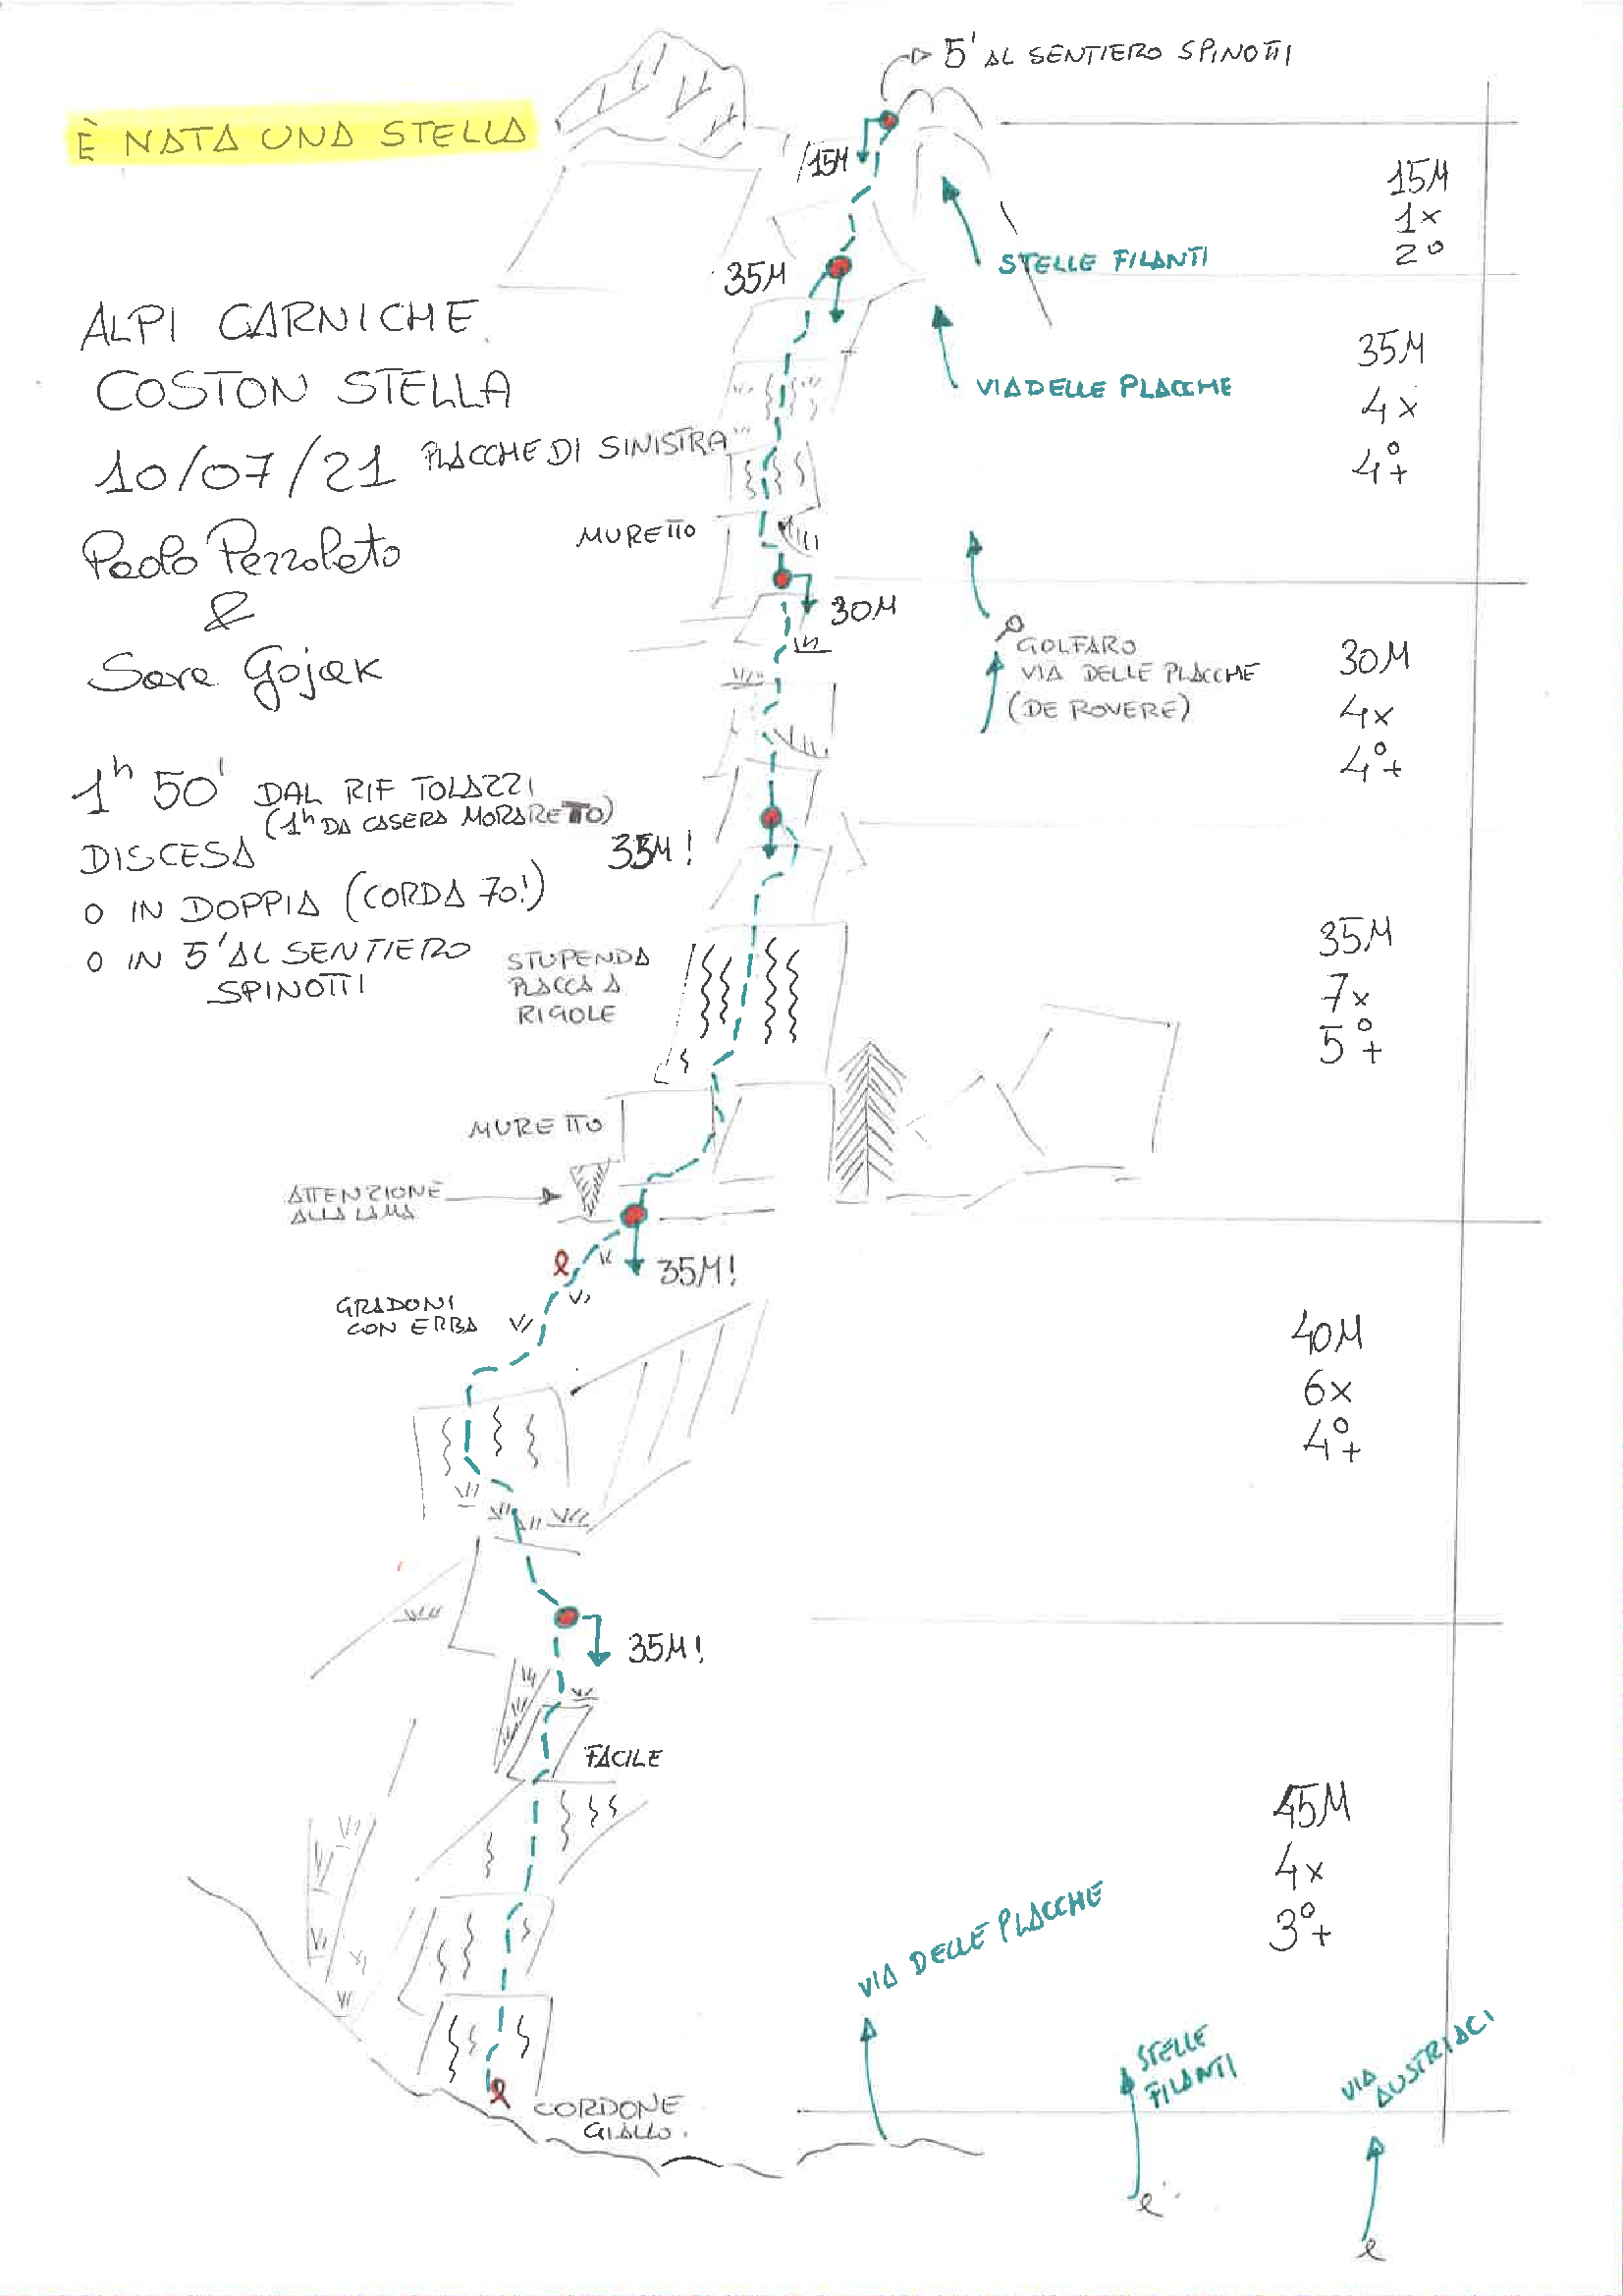 5' AL SENTIERO SPINOTTI
È NATA UNA STELLA
15M
15M
1x
2°
STELLE FILANTI
35M
ALPI CARNICHE
COSTON STELLA
10/07/21 PLACCHE DI SINISTRA
Paolo Pezzolato
&
Sara Gojak
VIA DELLE PLACCHE
35M
4x
4°+
MURETTO
30M
GOLFARO
VIA DELLE PLACCHE
(DE ROVERE)
30M
4x
4°+
1h 50' DAL RIF TOLAZZI
(1h DA CASERA MORARETTO)
DISCESA
O IN DOPPIA (CORDA 70!)
O IN 5' AL SENTIERO
SPINOTTI
35M!
STUPENDA
PLACCA A
RIGOLE
35M
7x
5°+
MURETTO
ATTENZIONE
ALLA LAMA
35M!
GRADONI
CON ERBA
40M
6x
4°+
35M!
FACILE
45M
4x
3°+
VIA DELLE PLACCHE
STELLE
FILANTI
VIA
AUSTRIACI
CORDONE
GIALLO.
e
e